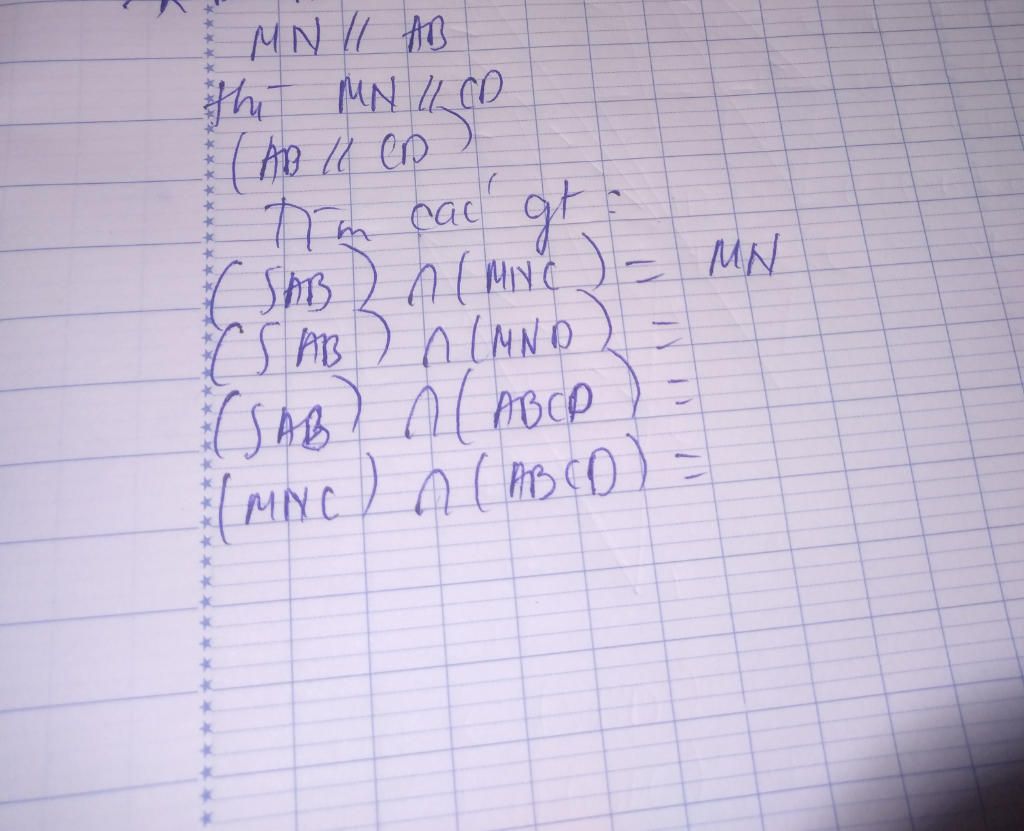 MN // AB
thì MN // CD
(AB // CD)
Tìm các gt :
(SAB) ∩ (MNC) = MN
(SAB) ∩ (MND) =
(SAB) ∩ (ABCD) =
(MNC) ∩ (ABCD) =